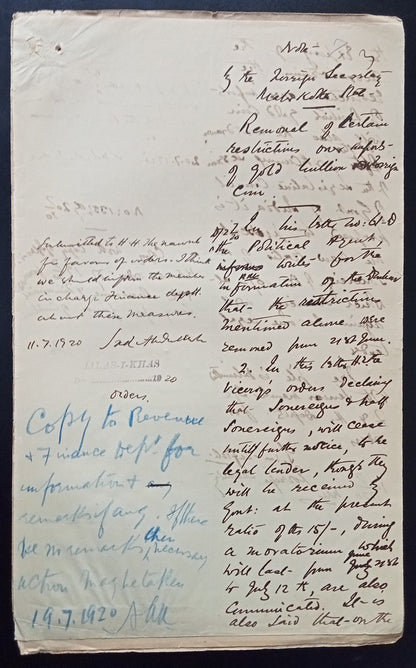 Note
By the Foreign Secretary
Malerkotla State
Removal of Certain
restrictions over import
of Gold bullion Foreign
Coin
In his letter No:
the Political Agent,
write for the
information of the Darbar
that the restriction
mentioned above were
removed from 21st June.
2. In this letter
Viceroy's orders declaring
that Sovereigns & half
Sovereigns, will cease
until further notice, to be
legal tender, though they
will be received by
Govt: at the present
ratio of Rs 15/-, during
a moratorium which
will last from June 21st
to July 12th, are also
Communicated. It is
also said that on the
Submitted to H.H. the Nawab
for favour of orders. I think
we should inform the member
in charge Finance deptt
about these measures.
11.7.1920
IJLAS-I-KHAS
1920
Orders.
Copy to Revenue
& Finance Dept for
information &
remarks if any. If there
be no remarks, then necessary
action may be taken
19.7.1920